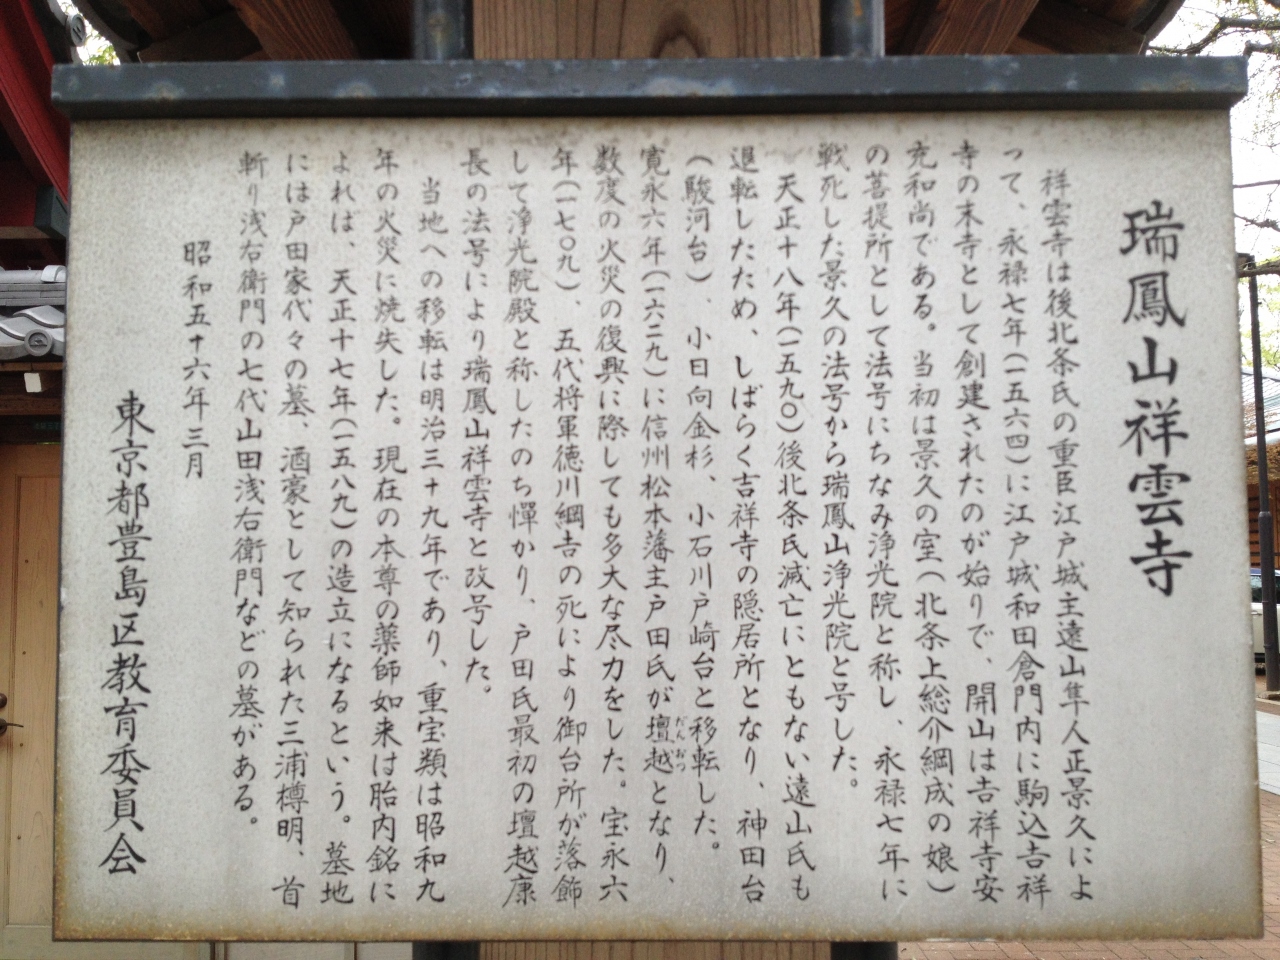 瑞鳳山祥雲寺
祥雲寺は後北条氏の重臣江戸城主遠山隼人正景久によ
って、永禄七年(一五六四)に江戸城和田倉門内に駒込吉祥
寺の末寺として創建されたのが始りで、開山は吉祥寺安
充和尚である。当初は景久の室(北条上総介綱成の娘)
の菩提所として法号にちなみ浄光院と称し、永禄七年に
戦死した景久の法号から瑞鳳山浄光院と号した。
天正十八年(一五九〇)後北条氏滅亡にともない遠山氏も
退転したため、しばらく吉祥寺の隠居所となり、神田台
(駿河台)、小日向金杉、小石川戸崎台と移転した。
寛永六年(一六二九)に信州松本藩主戸田氏が壇越となり、
だんおつ
数度の火災の復興に際しても多大な尽力をした。宝永六
年(一七〇九)、五代将軍徳川綱吉の死により御台所が落飾
して浄光院殿と称したのち憚かり、戸田氏最初の壇越康
長の法号により瑞鳳山祥雲寺と改号した。
当地への移転は明治三十九年であり、重宝類は昭和九
年の火災に焼失した。現在の本尊の薬師如来は胎内銘に
よれば、天正十七年(一五八九)の造立になるという。墓地
には戸田家代々の墓、酒豪として知られた三浦樽明、首
斬り浅右衛門の七代山田浅右衛門などの墓がある。
昭和五十六年三月
東京都豊島区教育委員会